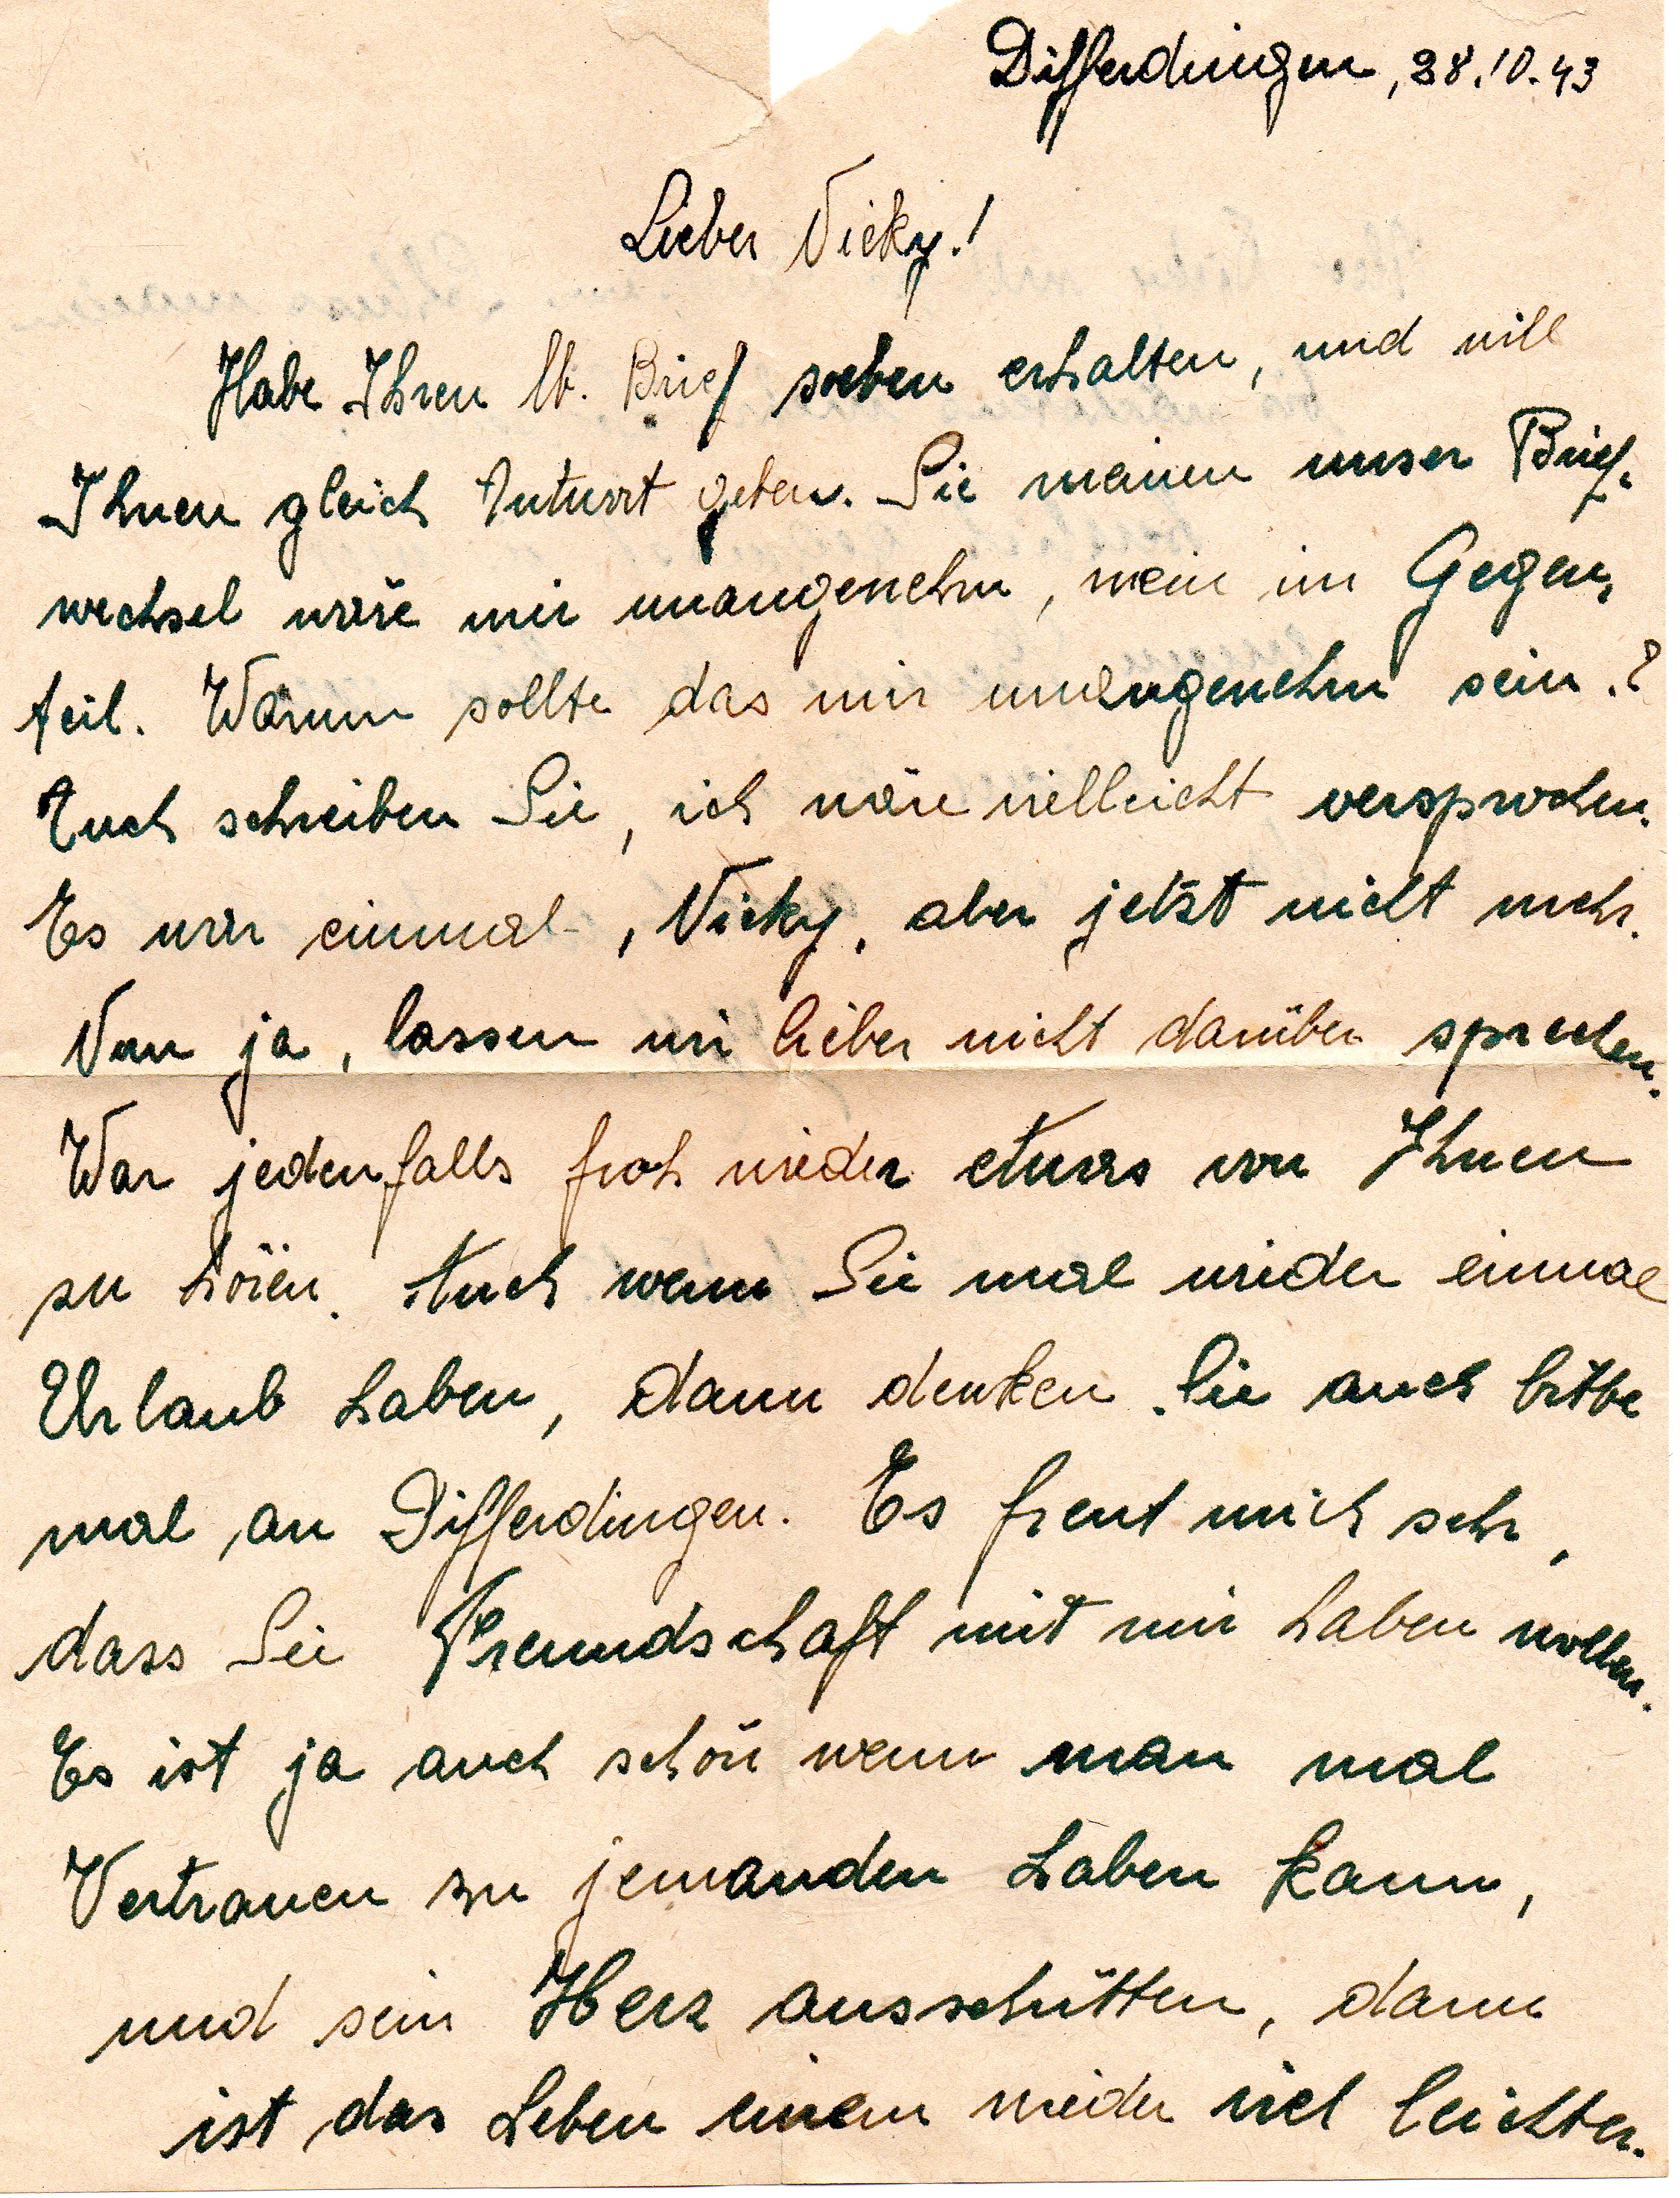 Differdingen, 28.10.43
Lieber Vicky!
Habe Ihren lb. Brief soeben erhalten, und will
Ihnen gleich Antwort geben. Sie meinen unser Brief-
wechsel wäre mir unangenehm, nein im Gegen-
teil. Warum sollte das mir unangenehm sein.?
Auch schreiben Sie, ich wäre vielleicht versprochen.
Es war einmal, Vicky, aber jetzt nicht mehr.
Nun ja, lassen wir lieber nicht darüber sprechen.
War jedenfalls froh wieder etwas von Ihnen
zu hören. Auch wenn Sie mal wieder einmal
Urlaub haben, dann denken Sie auch bitte
mal an Differdingen. Es freut mich sehr,
dass Sie Freundschaft mit mir haben wollen.
Es ist ja auch schön wenn man mal
Vertrauen zu jemanden haben kann,
und sein Herz ausschütten, dann
ist das Leben einem wieder viel leichter.